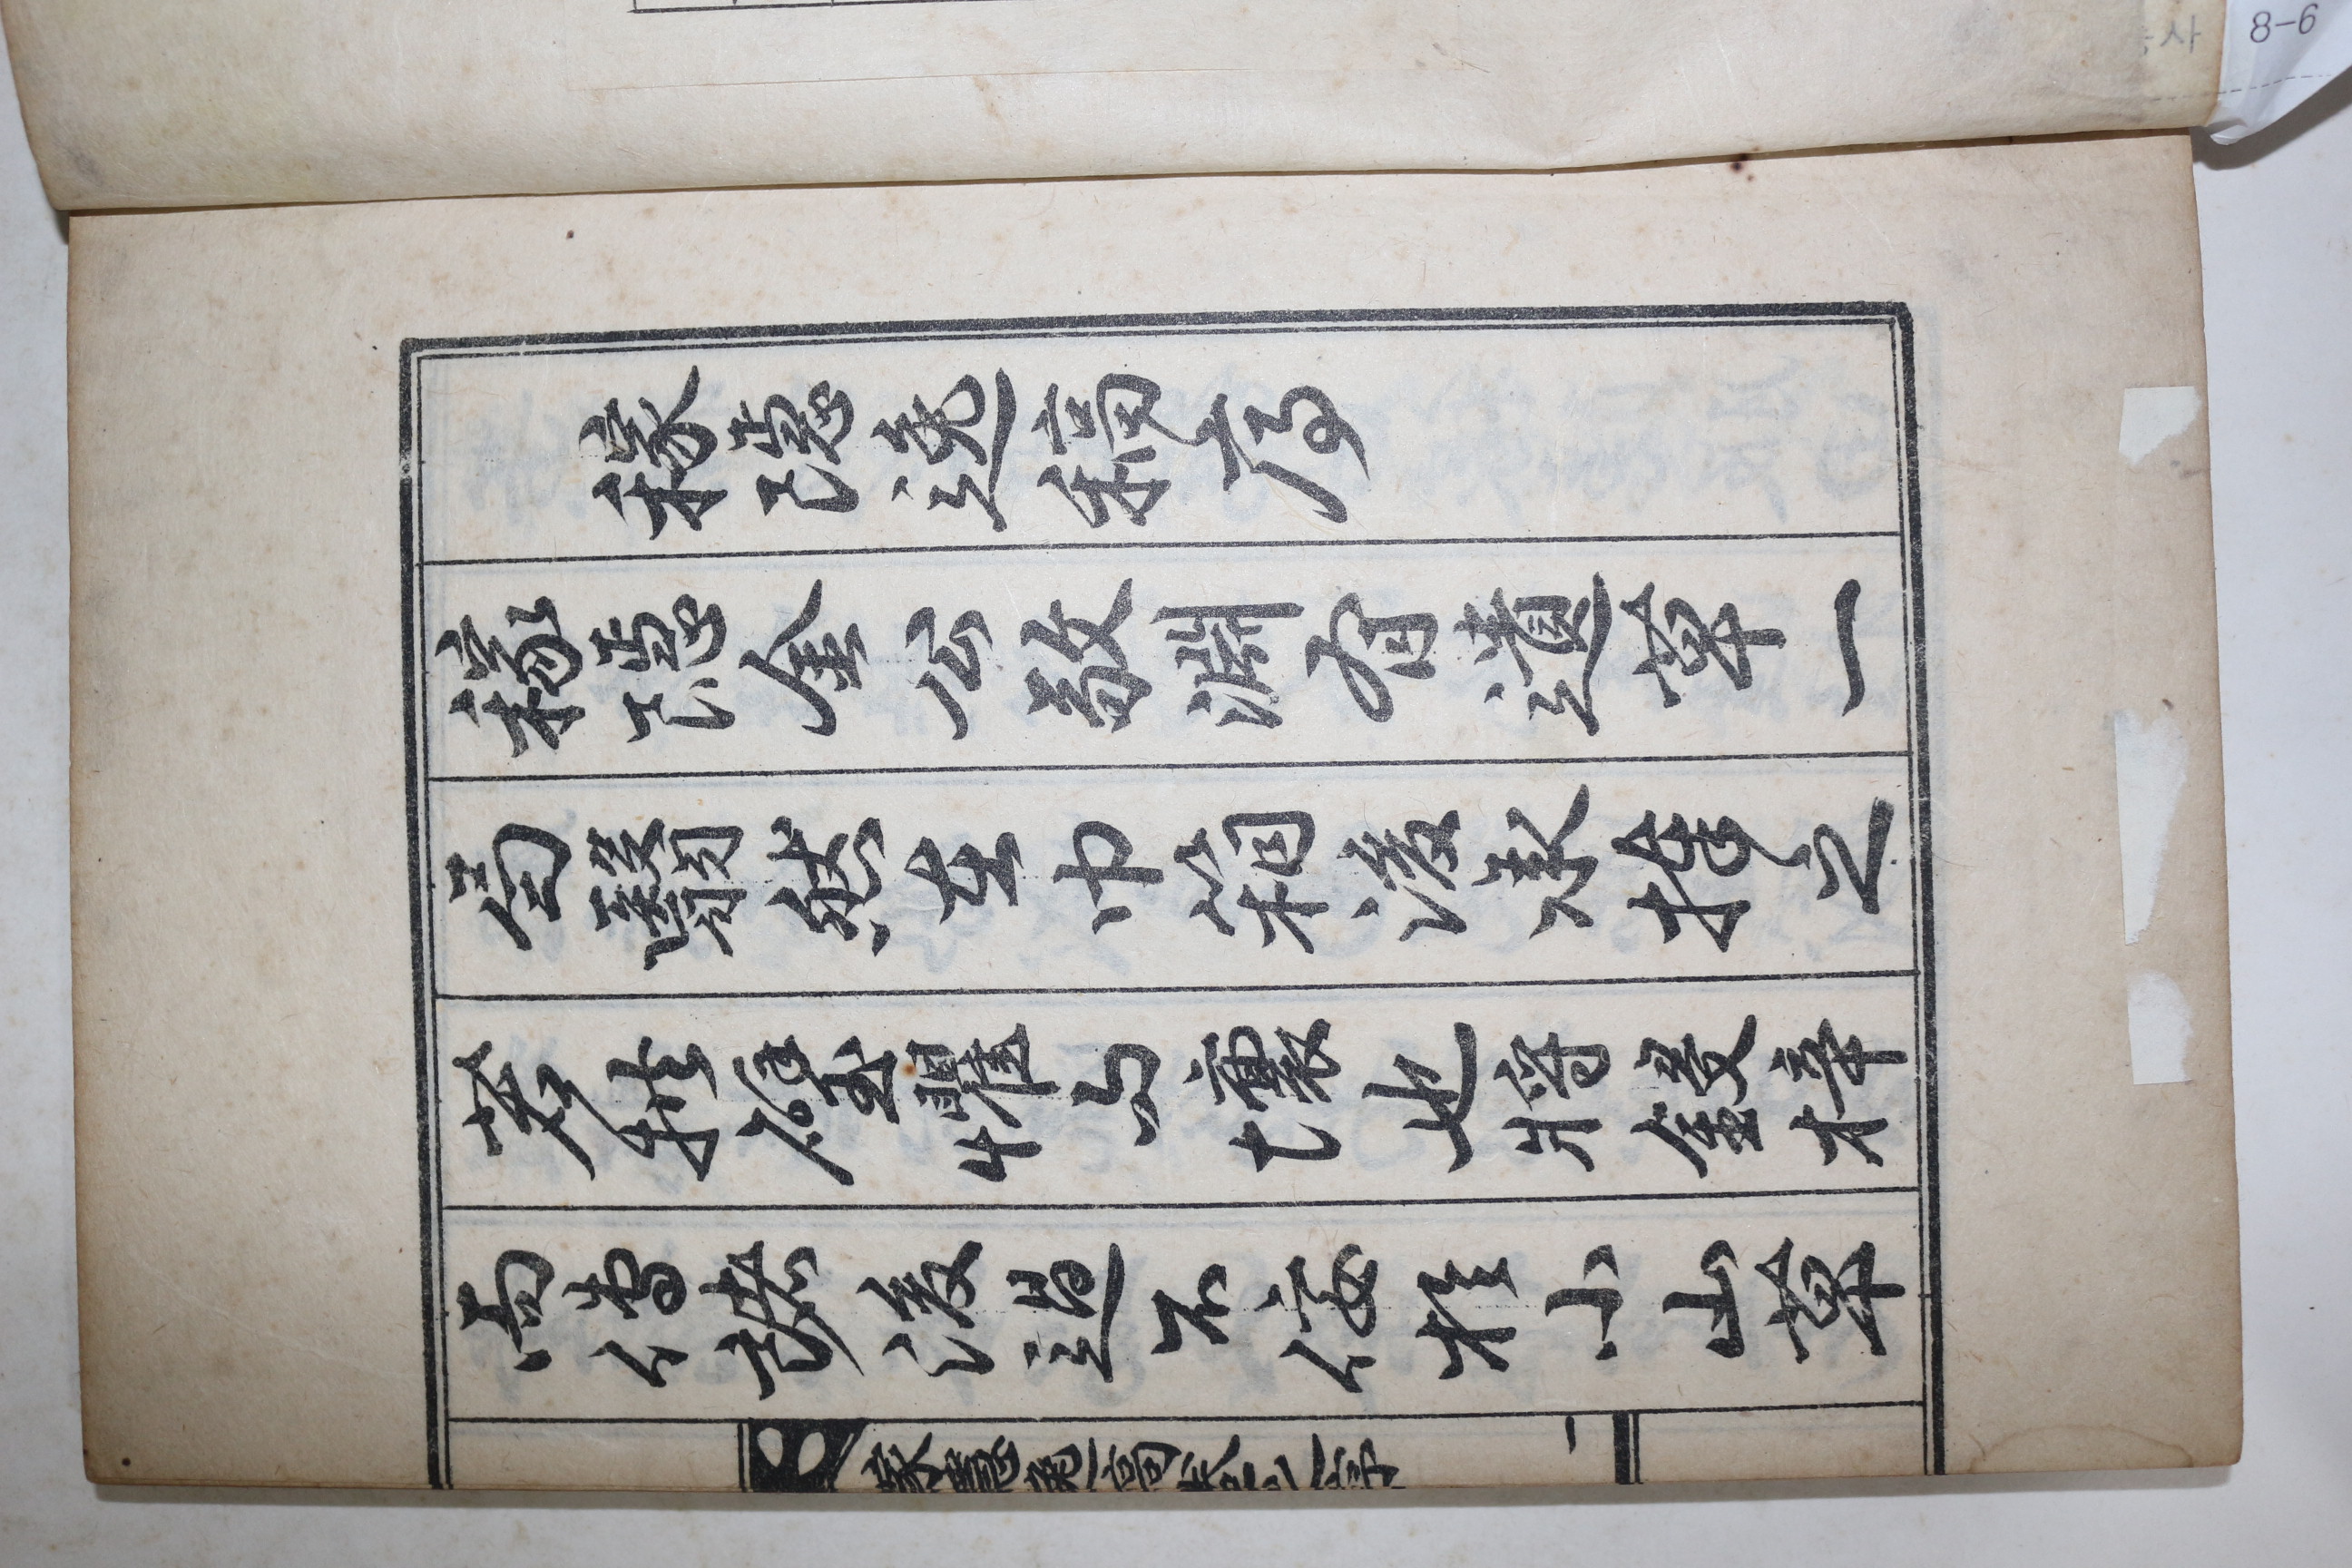 稼隱逸稿序
稼隱金公敬淵有遺草一
局翳然在巾箱後承捧之
若拱璧懼壞也將鋟梓
而傳諸後過不佞於小山草
稼隱逸稿卷之一序
一
사
8-6